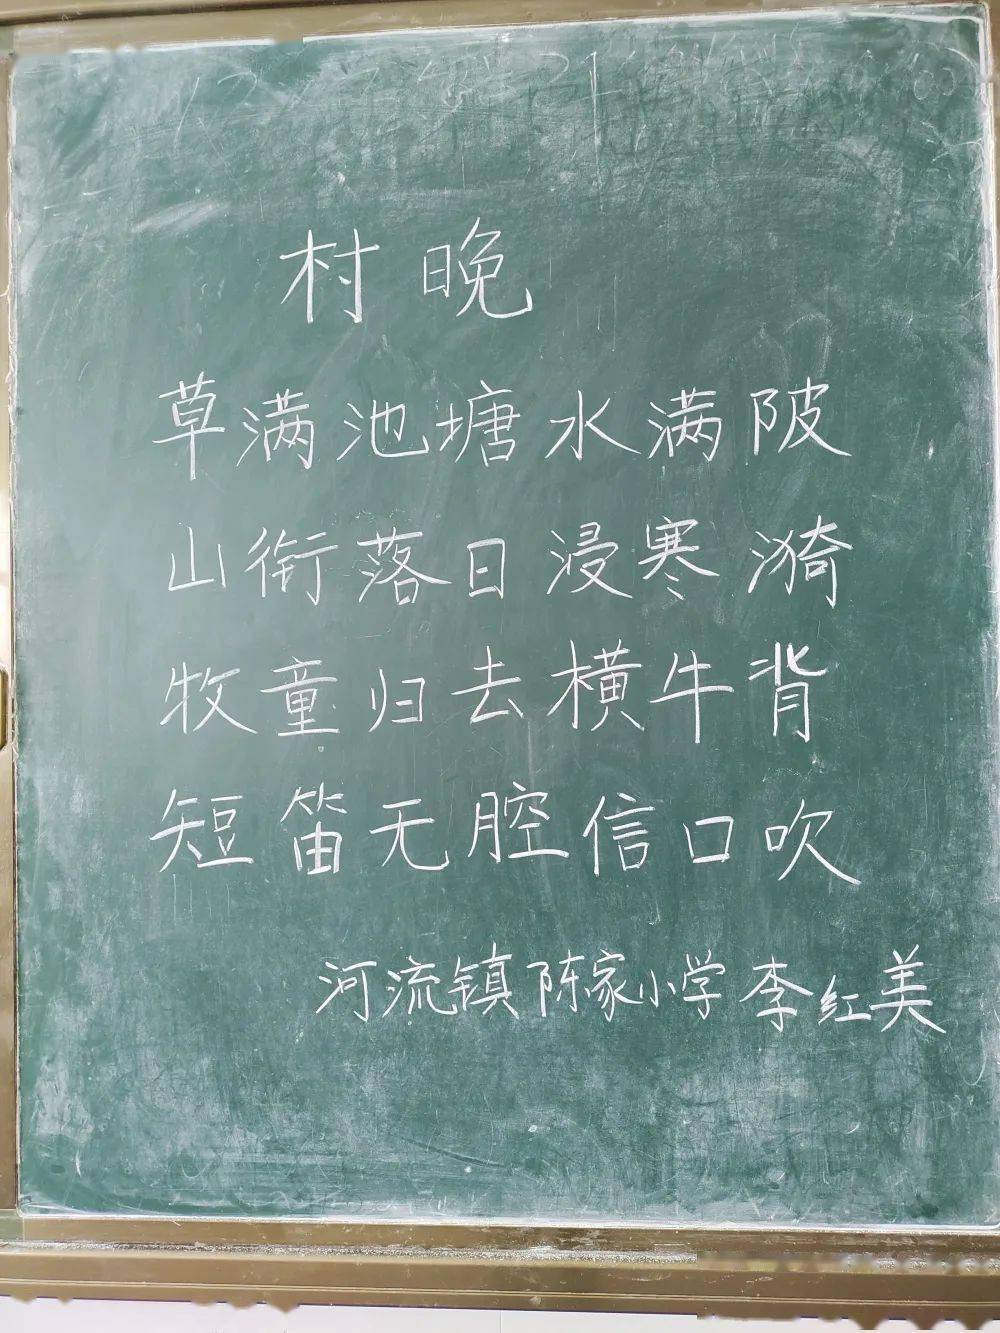 村晚
草满池塘水满陂
山衔落日浸寒漪
牧童归去横牛背
短笛无腔信口吹
河流镇陈家小学李红美